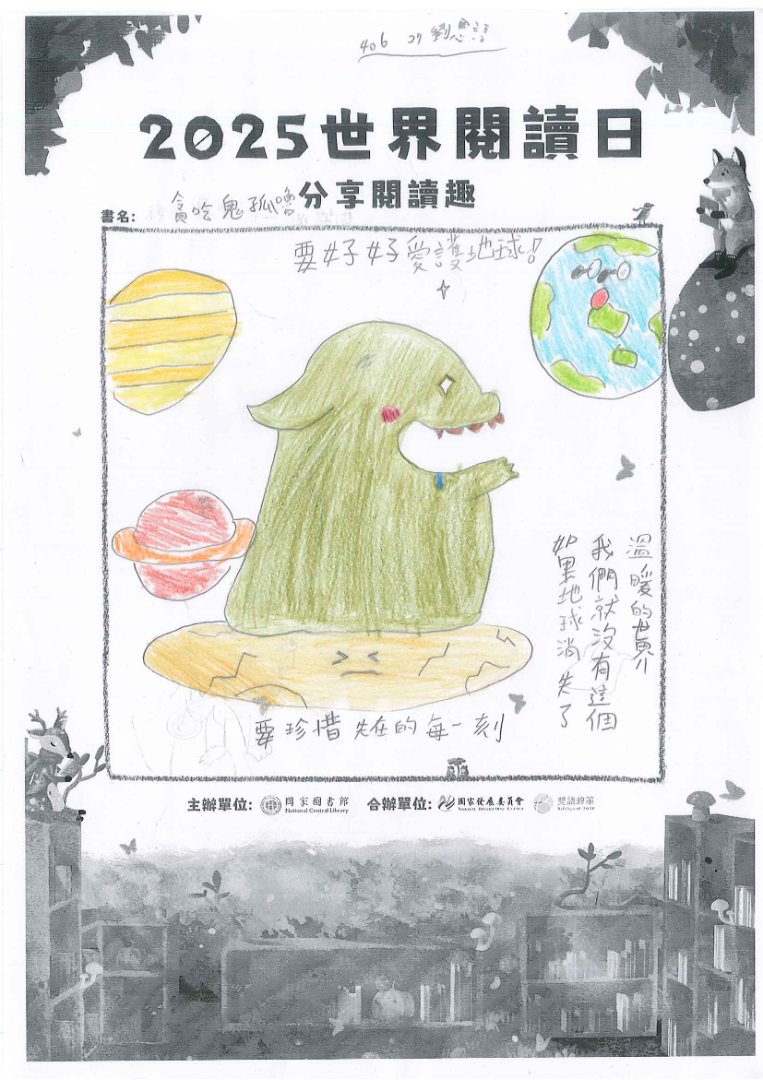 406 27 劉恩
2025世界閱讀日
分享閱讀趣
書名:
貪吃鬼孤嚕
要好好愛護地球!!
如果地球消失了
我們就沒有這個
溫暖的世界
要珍惜先在的每一刻
主辦單位: 國家圖書館 National Central Library 合辦單位: 國家發展委員會 雙語政策